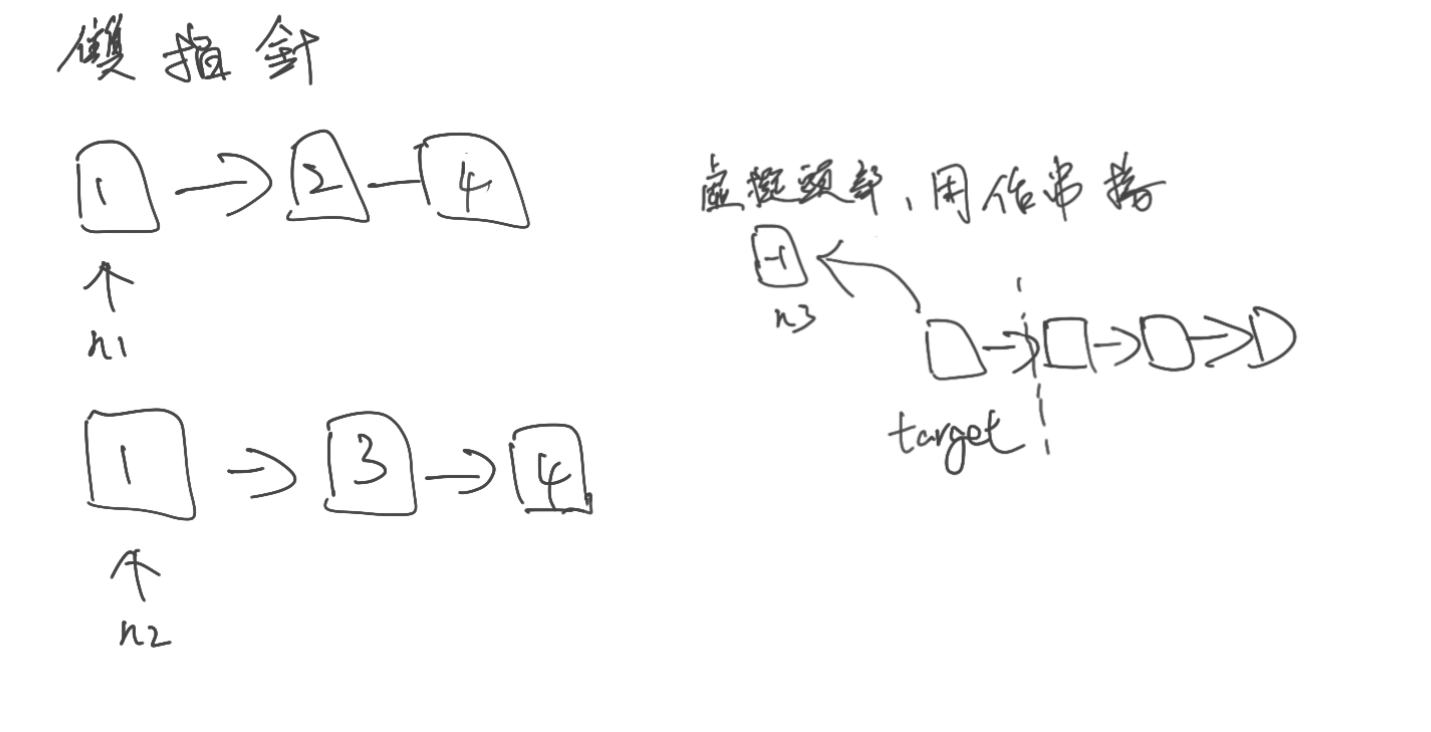 雙指針
1 2 4
n1
1 3 4
n2
虛擬頭部、用作串接
-1
n3
target